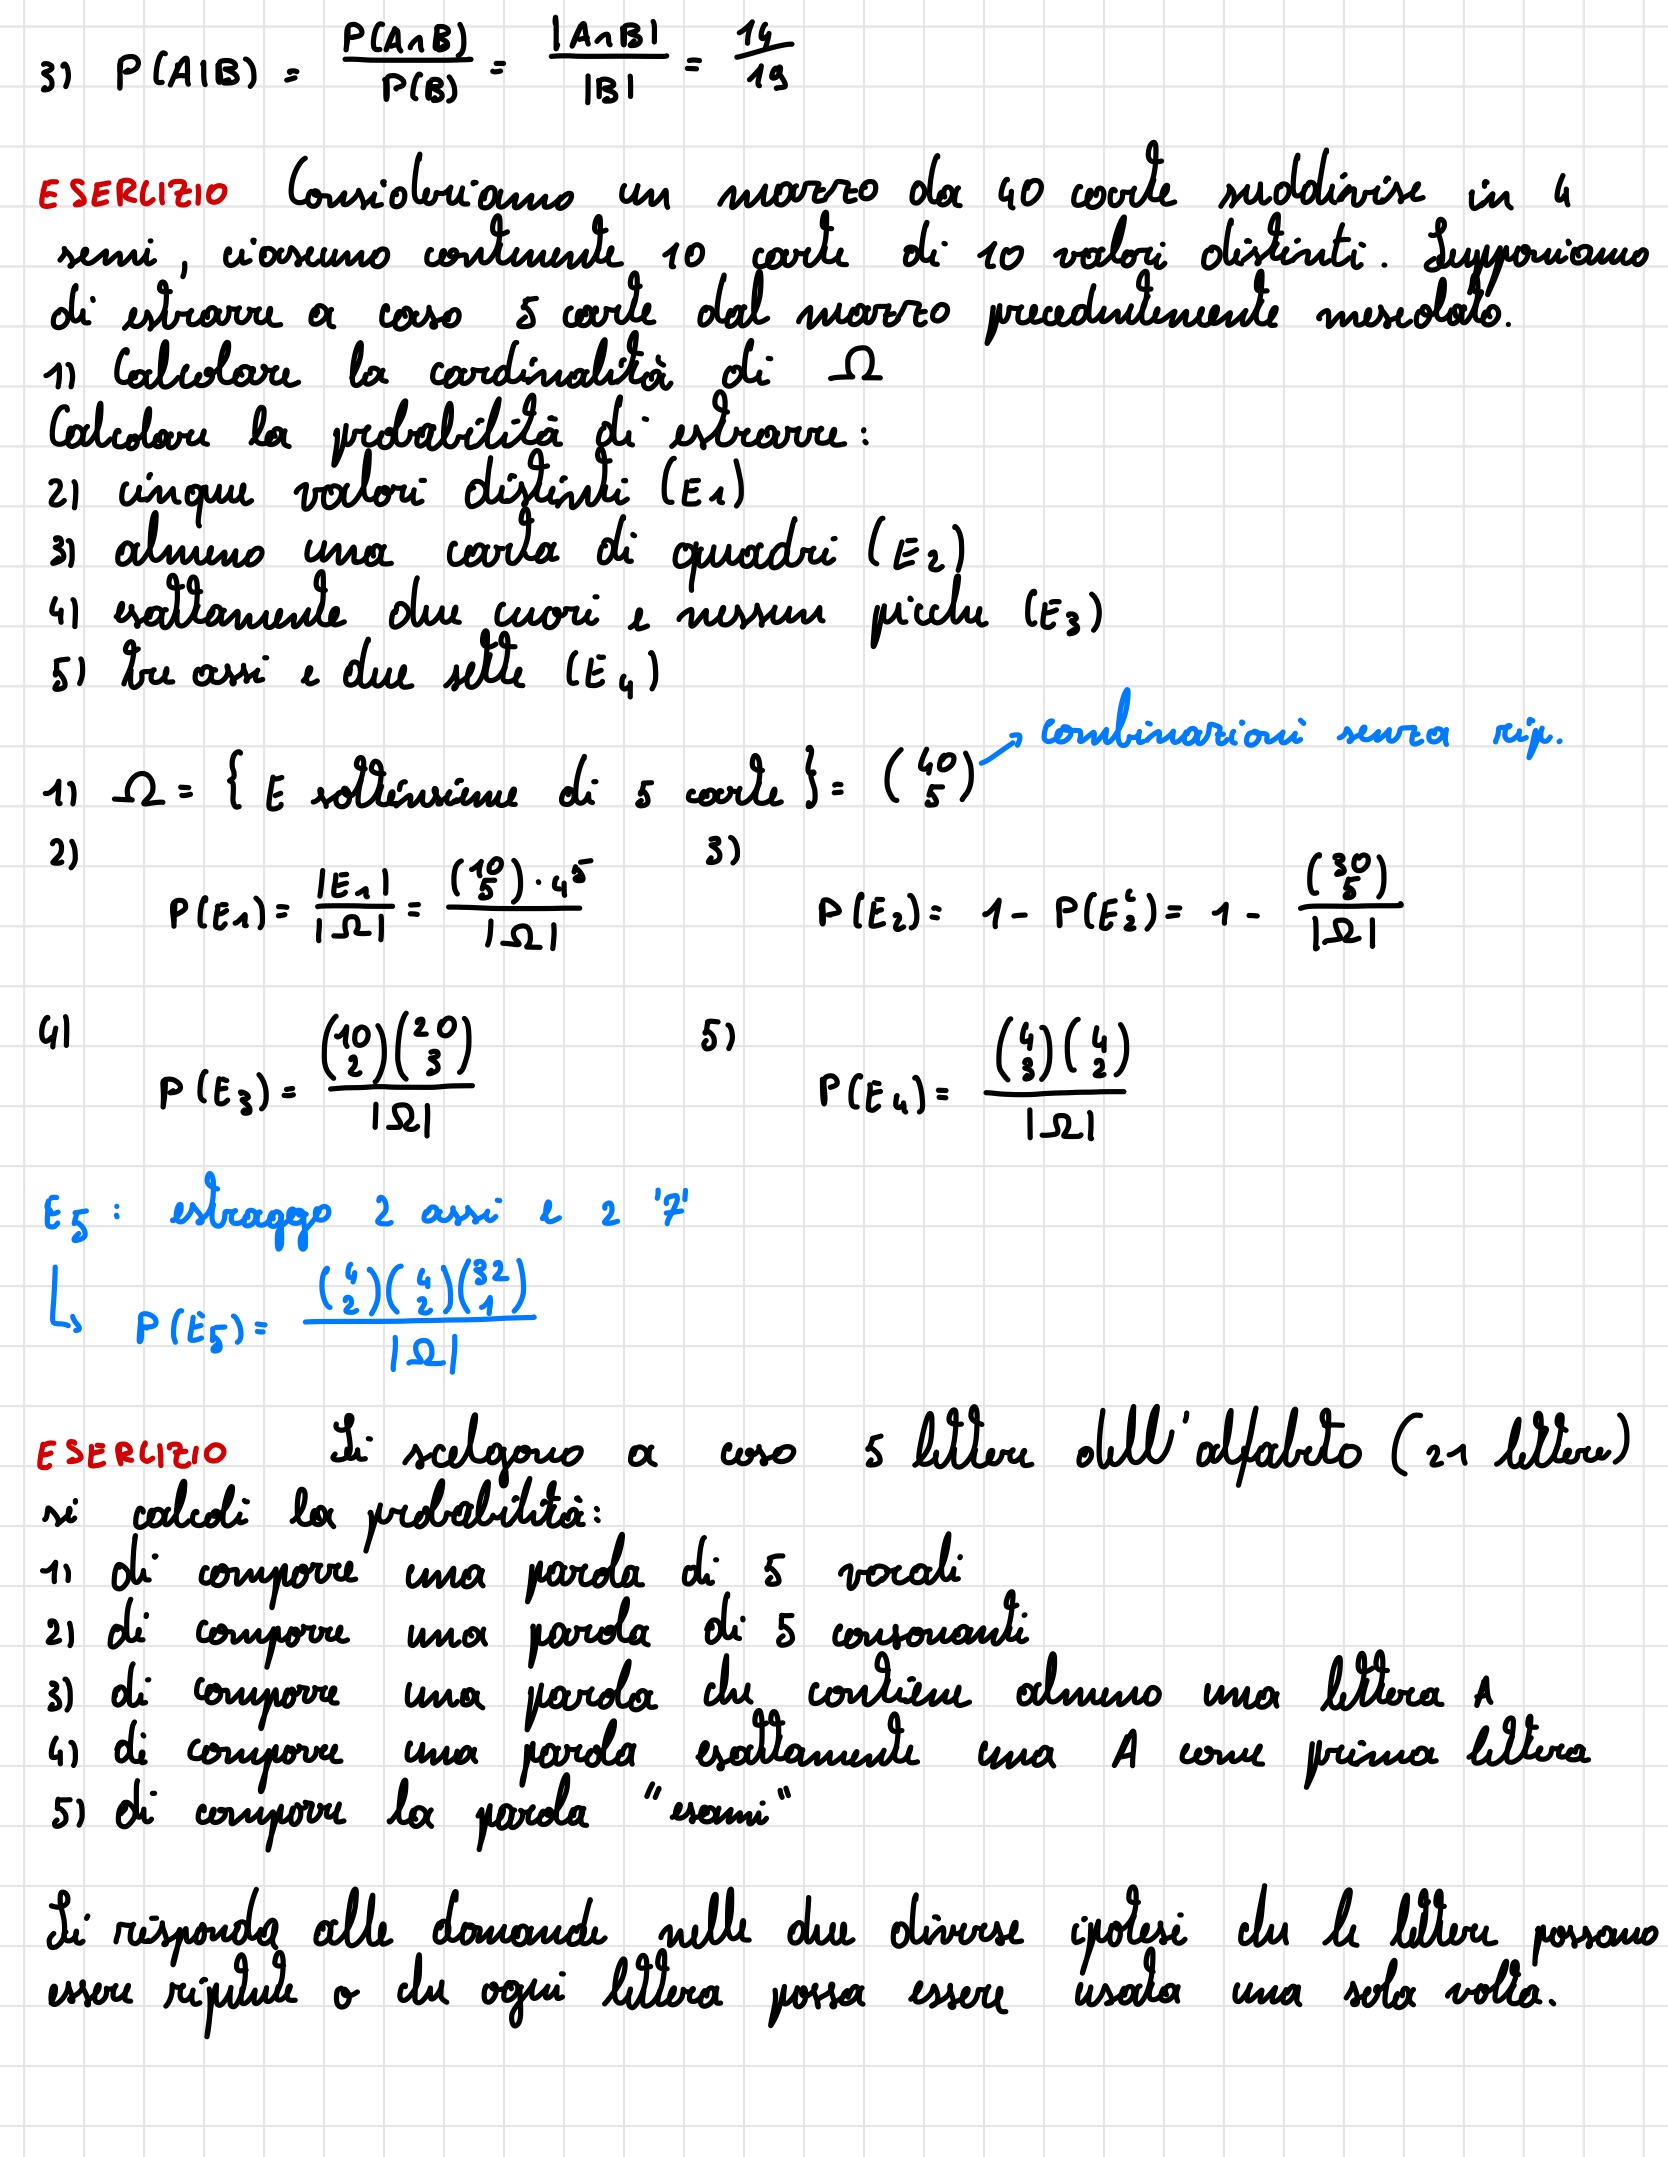 3) P(A|B) = P(A∩B)/P(B) = |A∩B|/|B| = 14/19
ESERCIZIO Consideriamo un mazzo da 40 carte suddivise in 4
semi, ciascuno contenente 10 carte di 10 valori distinti. Supponiamo
di estrarre a caso 5 carte dal mazzo precedentemente mescolato.
1) Calcolare la cardinalità di Ω
Calcolare la probabilità di estrarre:
2) cinque valori distinti (E1)
3) almeno una carta di quadri (E2)
4) esattamente due cuori e nessun picche (E3)
5) tre assi e due sette (E4)
→ combinazioni senza rip.
1) Ω = { E sottinsieme di 5 carte } = (40 5)
2) P(E1) = |E1|/|Ω| = (10 5) · 4^5 / |Ω|
3) P(E2) = 1 - P(E2^c) = 1 - (30 5)/|Ω|
4) P(E3) = (10 2)(20 3)/|Ω|
5) P(E4) = (4 3)(4 2)/|Ω|
E5 : estraggo 2 assi e 2 '7'
↳ P(E5) = (4 2)(4 2)(32 1)/|Ω|
ESERCIZIO Si scelgono a caso 5 lettere dell'alfabeto (21 lettere)
si calcoli la probabilità:
1) di comporre una parola di 5 vocali
2) di comporre una parola di 5 consonanti
3) di comporre una parola che contiene almeno una lettera A
4) di comporre una parola esattamente una A come prima lettera
5) di comporre la parola "esami"
Si risponda alle domande nelle due diverse ipotesi che le lettere possano
essere ripetute o che ogni lettera possa essere usata una sola volta.